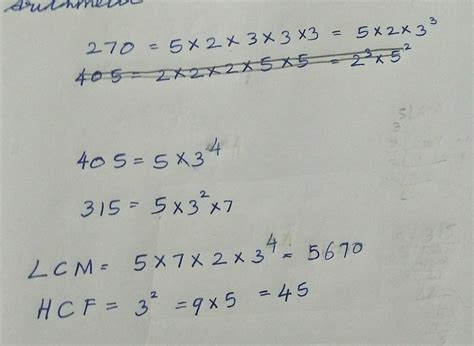 270 = 5×2×3×3×3 = 5×2×3³
405 = 2×2×2×5×5 = 2³×5²
405 = 5×3⁴
315 = 5×3²×7
LCM = 5×7×2×3⁴ = 5670
HCF = 3² = 9×5 = 45